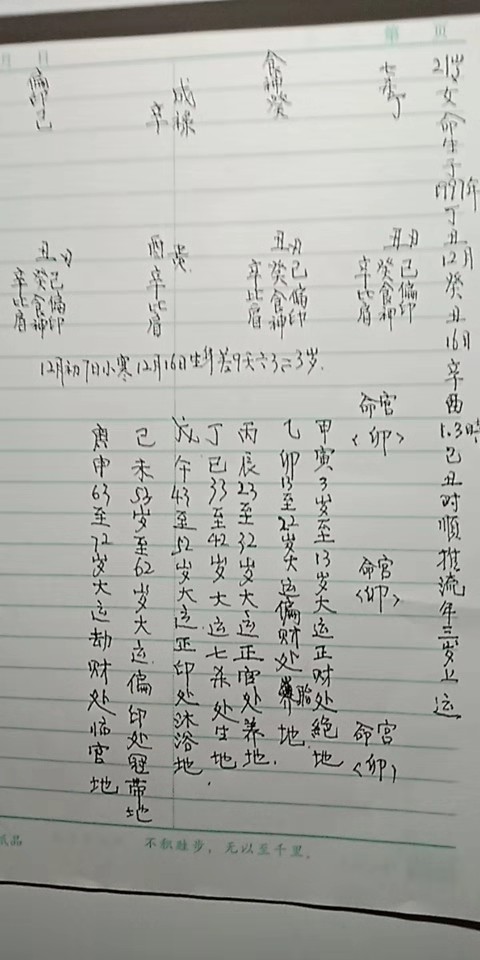 月 日 第 页
21岁女命生于1997年丁丑12月癸丑16日辛酉1.3時己丑时顺推流年三岁上运
七杀丁
食神癸
成禄
辛
偏印己
丑
己偏印
癸食神
辛比肩
丑
己偏印
癸食神
辛比肩
酉
辛比肩
丑
己偏印
癸食神
辛比肩
12月初7日小寒12月16日生年差9天
3岁.
命宫
<卯>
命宫
<卯>
命宫
<卯>
甲寅3岁至13岁大运正财处绝地
乙卯13至22岁大运偏财处胎地.
丙辰23至32岁大运正官处养地.
丁巳33至42岁大运七杀处生地.
戊午43至52岁大运正印处沐浴地
己未53岁至62岁大运偏印处冠带地
庚申63至72岁大运劫财处临官地
不积跬步，无以至千里。